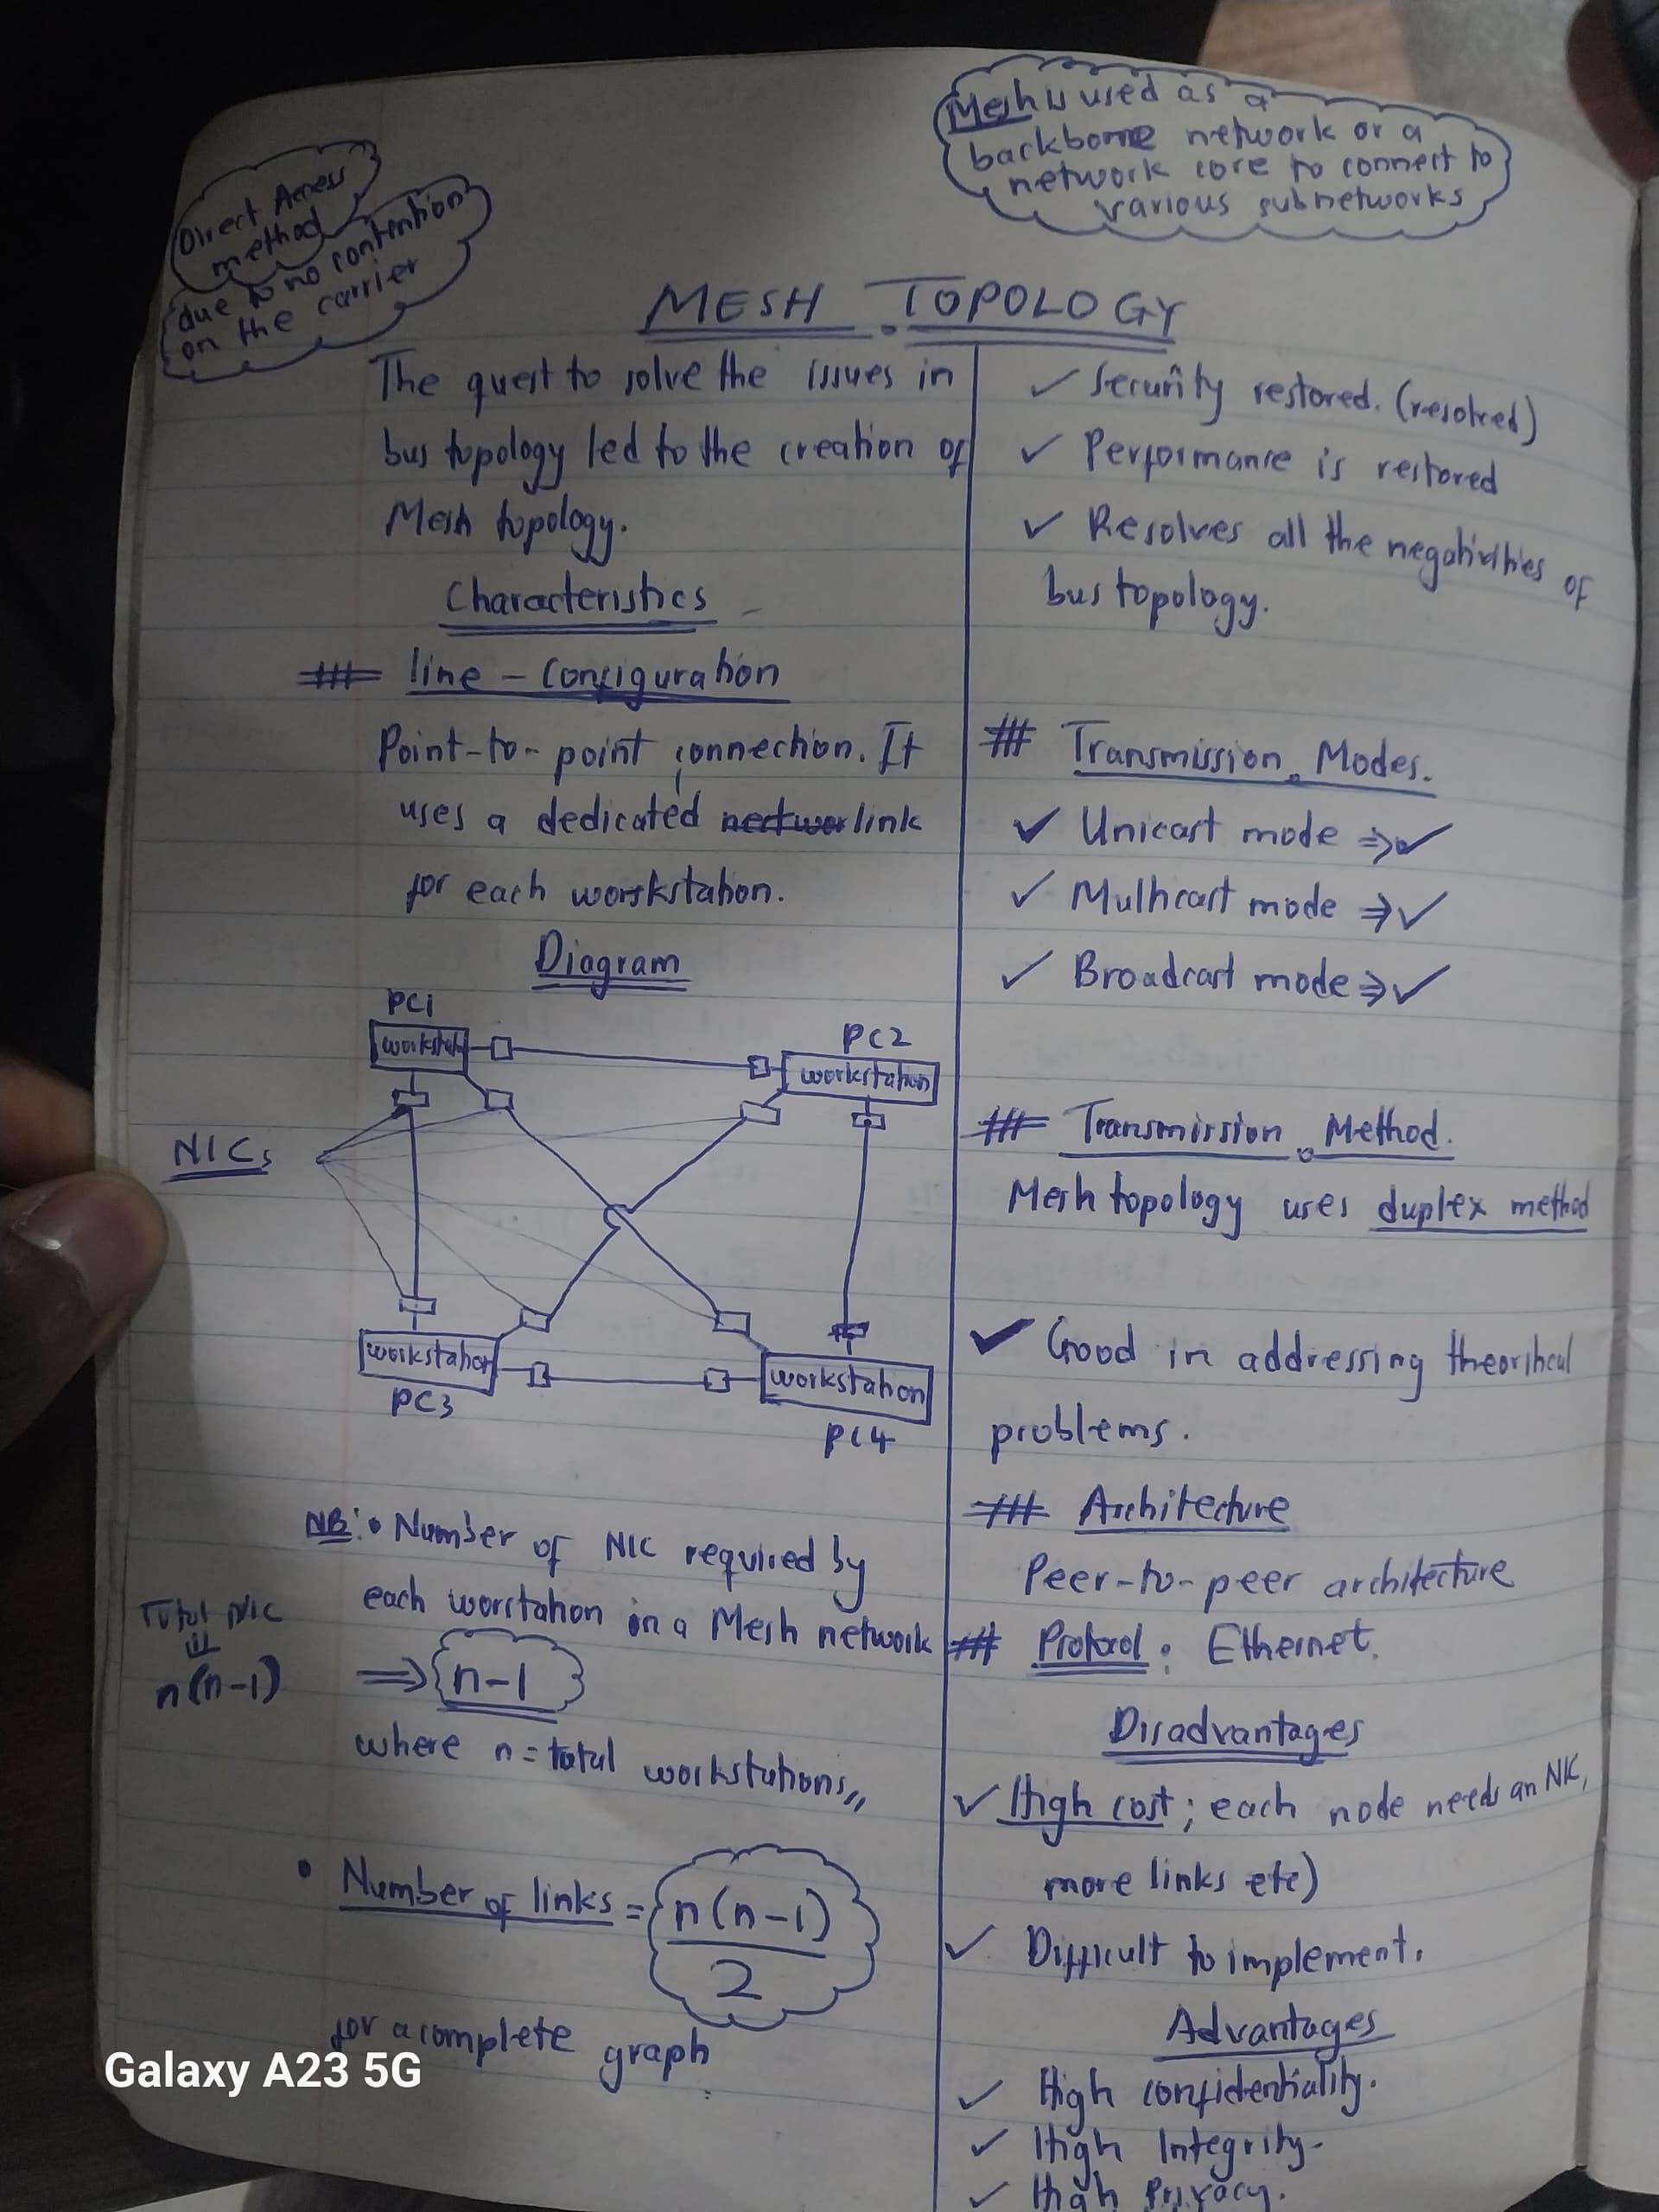 Mesh is used as a
backbone network or a
network core to connect to
various subnetworks
Direct Access
method
due to no contention
on the carrier
MESH TOPOLOGY
The quest to solve the issues in
bus topology led to the creation of
Mesh topology.
Characteristics
# line - configuration
Point-to-point connection. It
uses a dedicated link
for each workstation.
Diagram
PC1
workstat
PC2
workstation
NICs
workstation
PC3
workstation
PC4
NB: • Number of NIC required by
each worstation in a Mesh network
Total NIC
n(n-1)
⇒ n-1
where n = total workstations,,
• Number of links = n(n-1)
2
for a complete graph.
✓ Security restored. (resolved)
✓ Performance is restored
✓ Resolves all the negativities of
bus topology.
# Transmission Modes.
✓ Unicast mode ⇒ ✓
✓ Multicast mode ⇒ ✓
✓ Broadcast mode ⇒ ✓
# Transmission Method.
Mesh topology uses duplex method
✓ Good in addressing theoritical
problems.
# Architecture
Peer-to-peer architecture
# Protocol: Ethernet.
Disadvantages
✓ High cost; each node needs an NIC,
more links etc)
✓ Difficult to implement.
Advantages
✓ High confidentiality.
✓ High Integrity-
✓ High Privacy.
Galaxy A23 5G